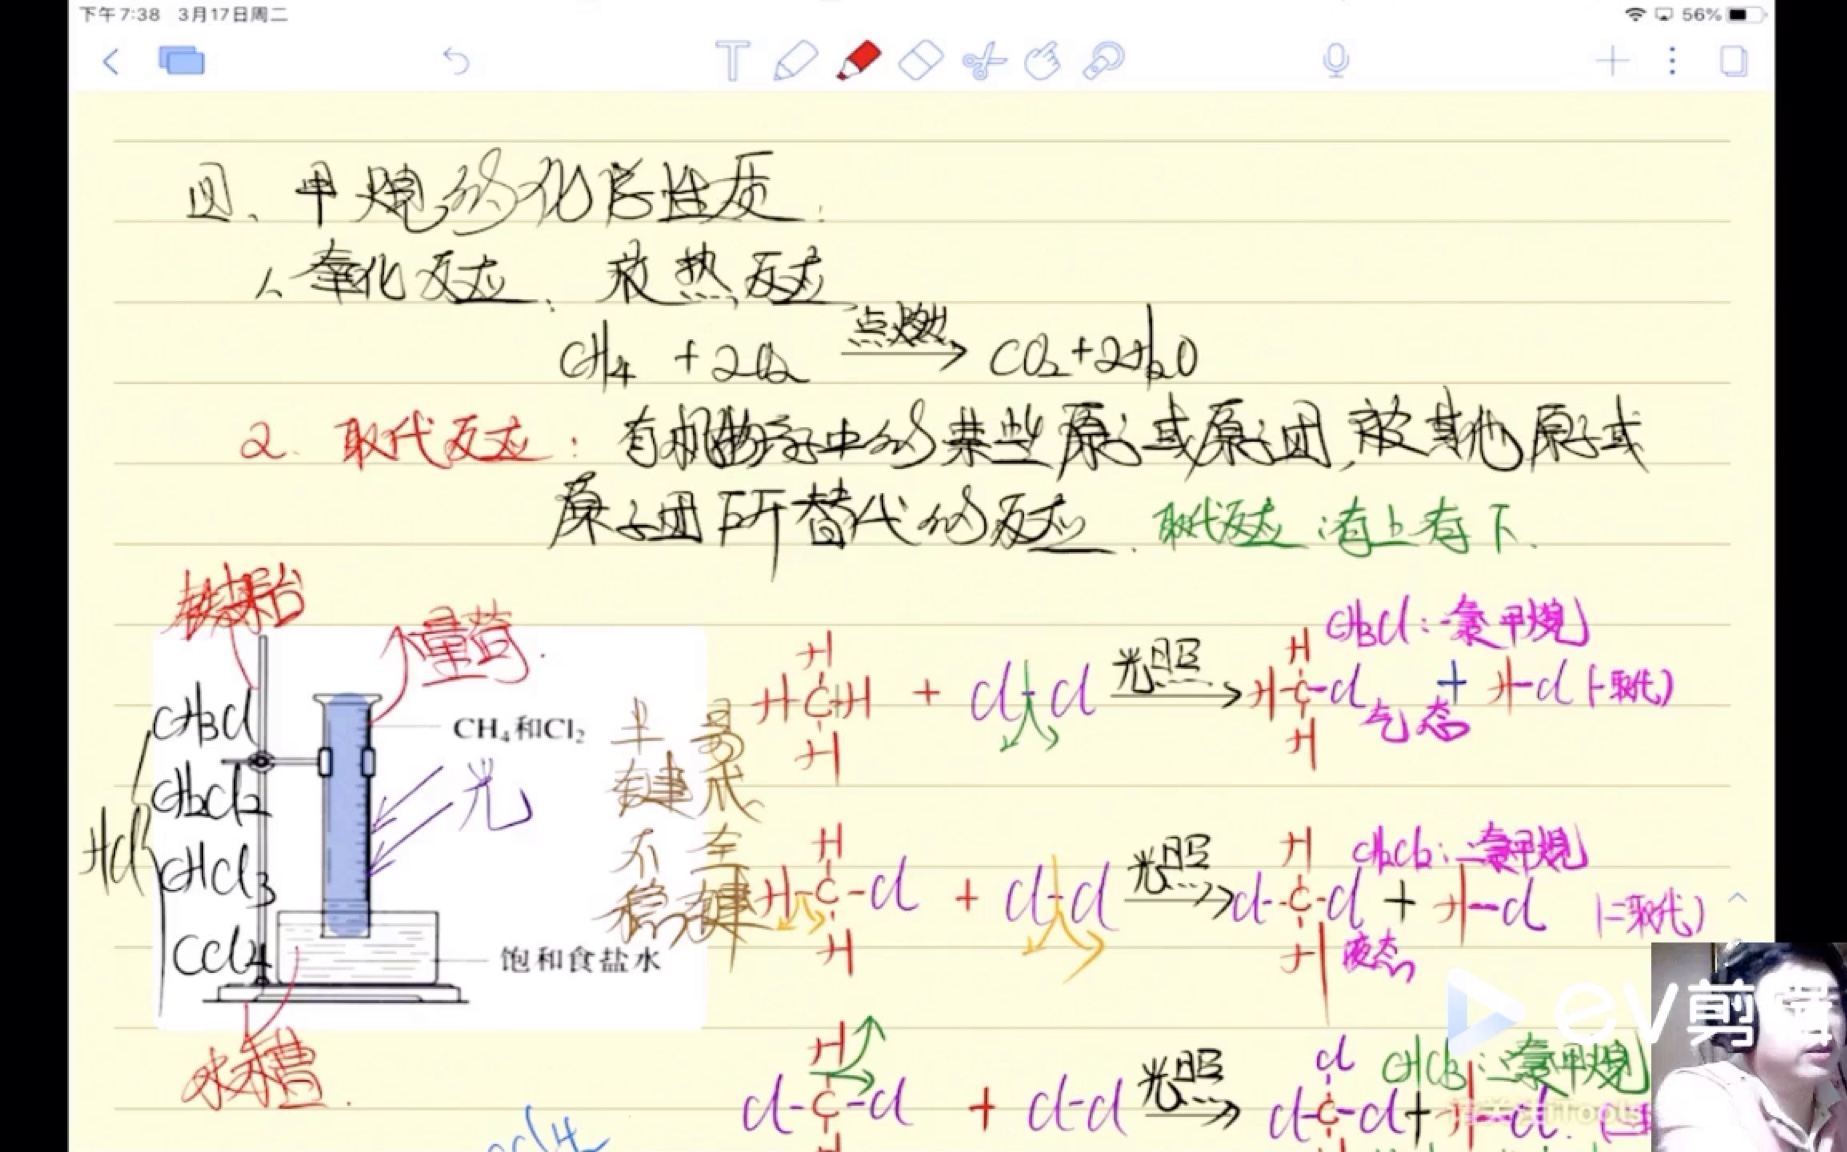 下午7:38 3月17日周二
56%
四、甲烷的化学性质：
1、氧化反应、放热反应
点燃
CH4 + 2O2 → CO2+2H2O
2. 取代反应：有机物分子中的某些原子或原子团，被其他原子或
原子团所替代的反应. 取代反应：有上有下.
铁架台
量筒.
CH3Cl
CH2Cl2
CHCl3
CCl4
HCl
CH₄和Cl₂
光
饱和食盐水
水槽.
半键不稳
易成全键
CH3Cl：一氯甲烷
H H
H C H + Cl-Cl 光照 → H-C-Cl + H-Cl (一取代)
H H 气态
H H CH2Cl2：二氯甲烷
H-C-Cl + Cl-Cl 光照 → Cl-C-Cl + H-Cl (二取代)
H H 液态
H Cl CHCl3：三氯甲烷
Cl-C-Cl + Cl-Cl 光照 → Cl-C-Cl + H-Cl
H H
EV剪辑